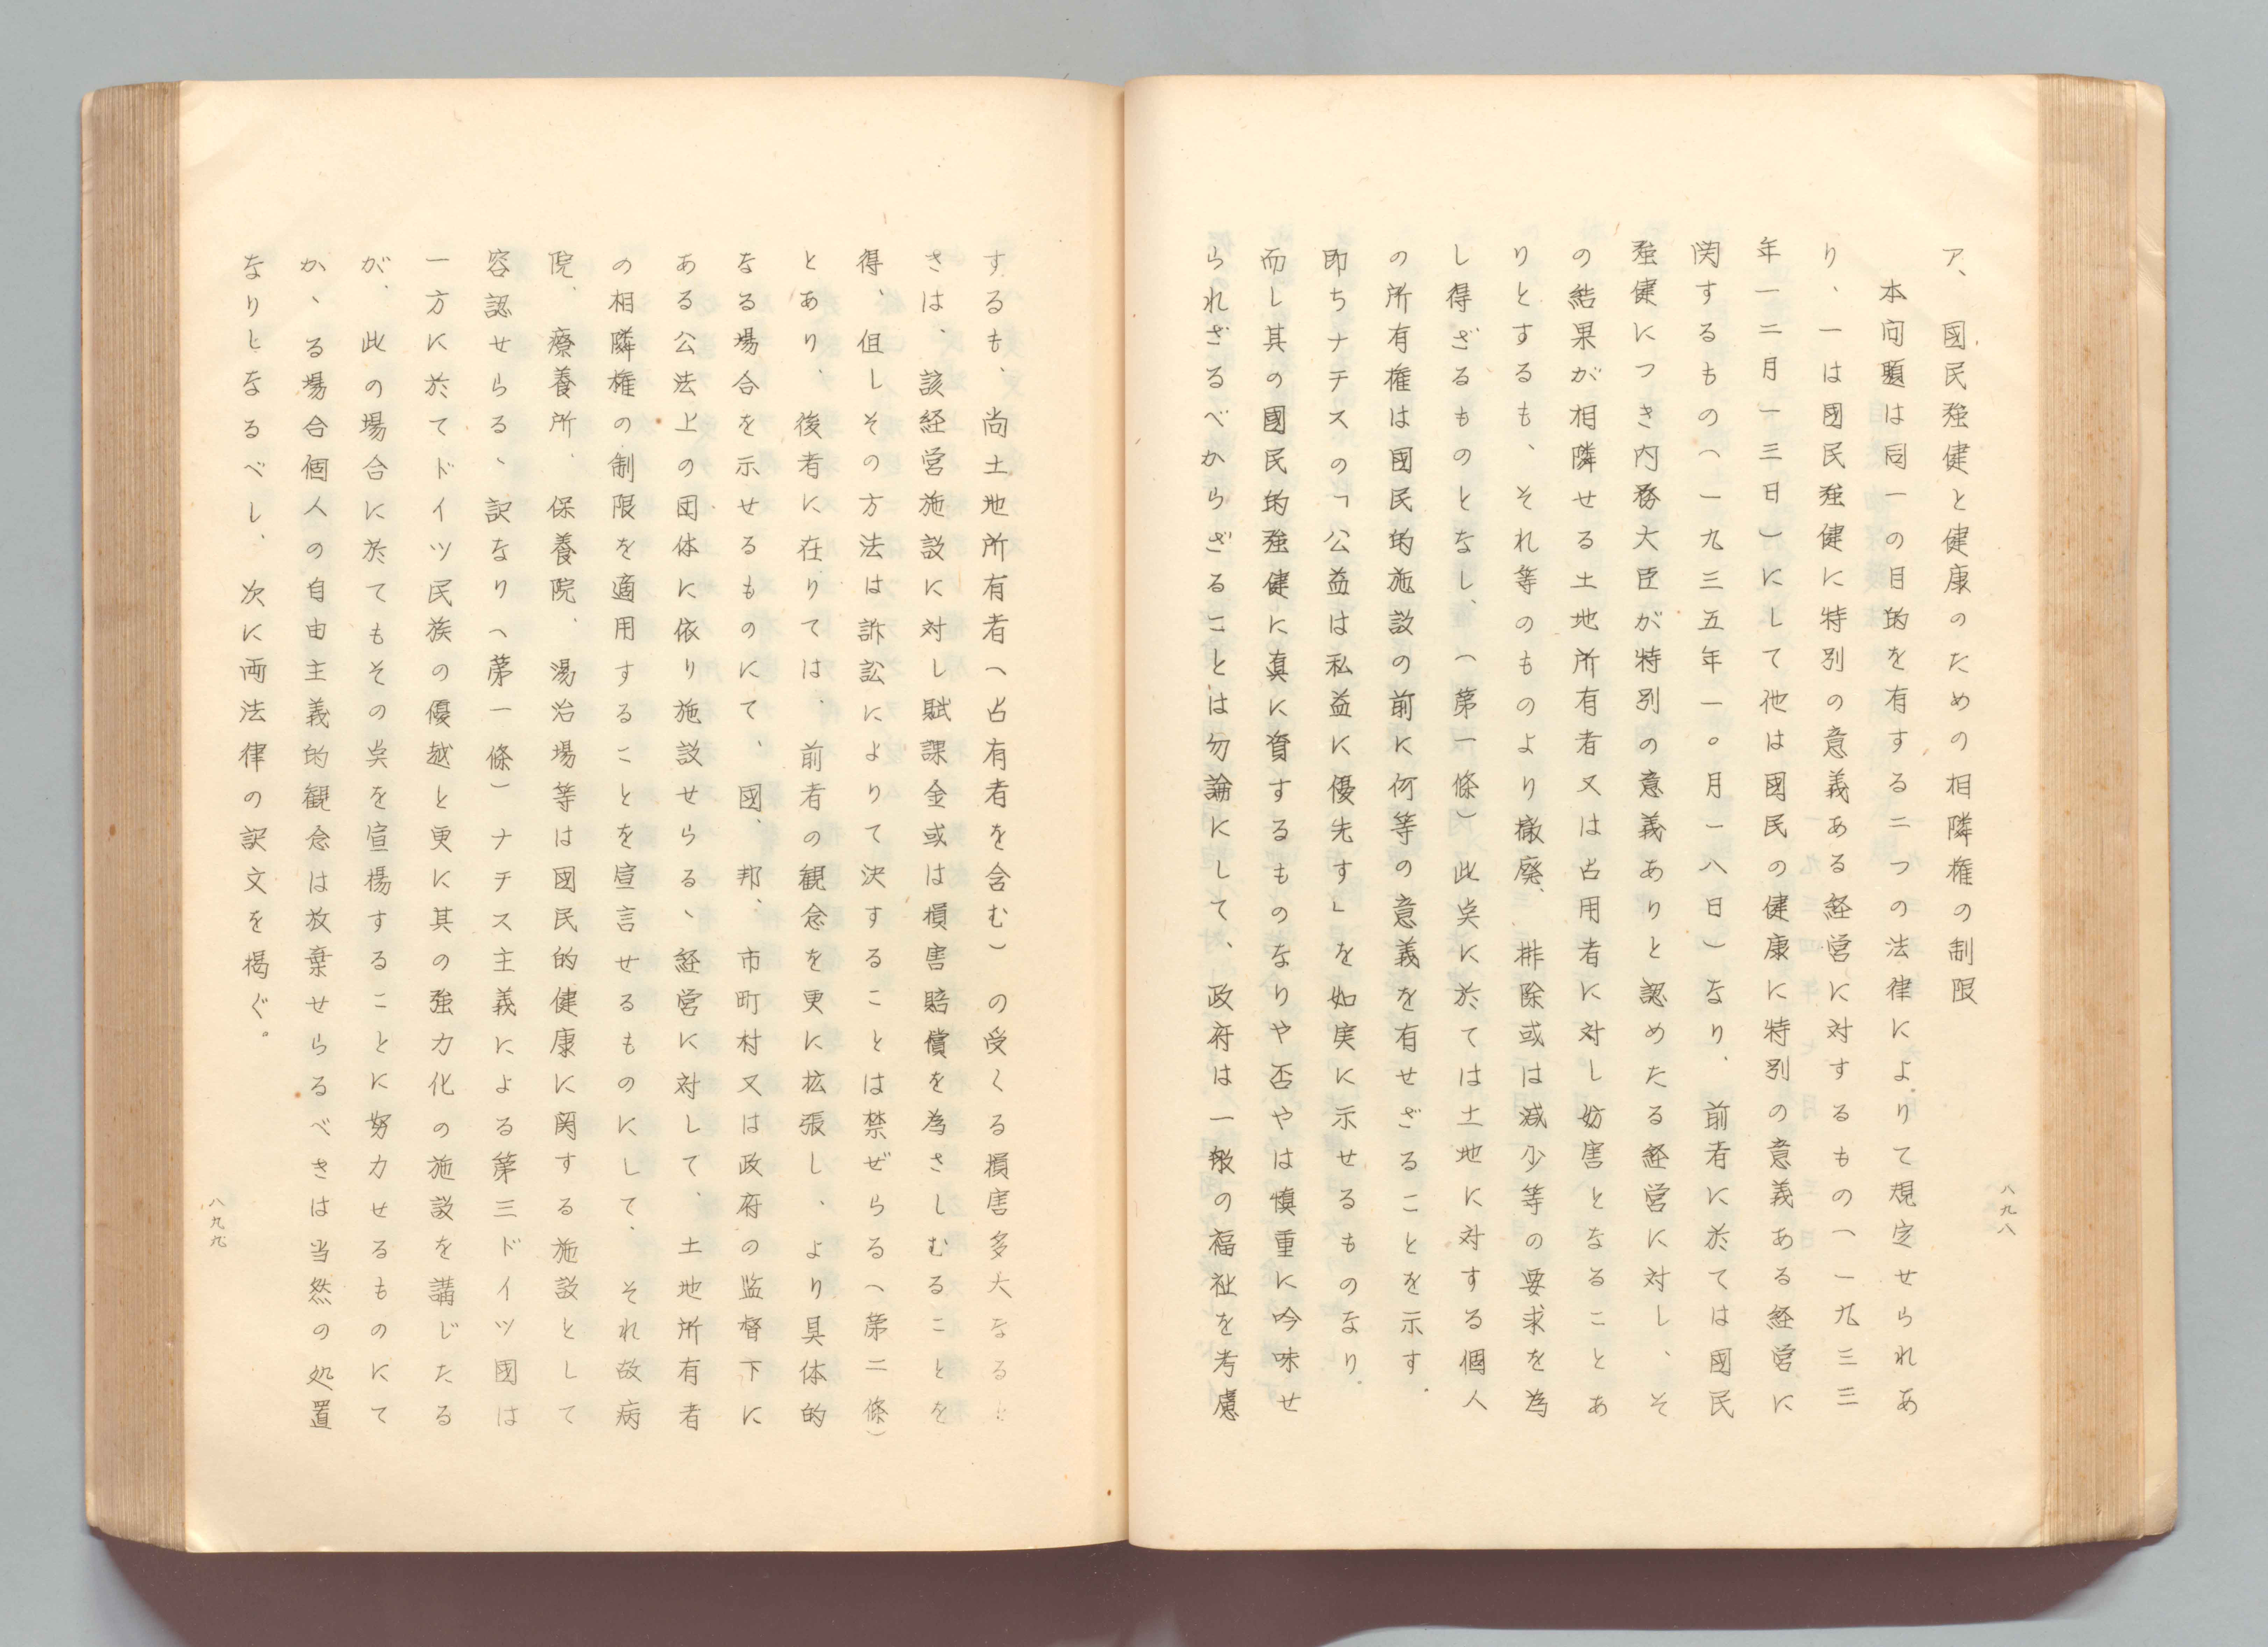 ア、國民強健と健康のための相隣権の制限
本问題は同一の目的を有する二つの法律によりて規定せられあ
り、一は國民強健に特別の意義ある経営に対するもの(一九三三
年一二月一三日)にして他は國民の健康に特別の意義ある経営に
関するもの(一九三五年一〇月一八日)なり、前者に於ては國民
強健につき内務大臣が特別の意義ありと認めたる経営に対し、そ
の結果が相隣せる土地所有者又は占用者に対し妨害となることあ
りとするも、それ等のものより撤廃、排除或は減少等の要求を為
し得ざるものとなし、(第一條)此奌に於ては土地に対する個人
の所有権は國民的施設の前に何等の意義を有せざることを示す、
即ちナチスの「公益は私益に優先す」を如実に示せるものなり、
而し其の國民的強健に真に資するものなりや否やは慎重に吟味せ
られざるべからざることは勿論にして、政府は一般の福祉を考慮
八九八
するも、尚土地所有者(占有者を含む)の受くる損害多大なると
きは、該経営施設に対し賦課金或は損害賠償を為さしむることを
得、但しその方法は訴訟によりて決することは禁ぜらる(第二條)
とあり、後者に在りては、前者の観念を更に拡張し、より具体的
なる場合を示せるものにて、國、邦、市町村又は政府の監督下に
ある公法上の団体に依り施設せらるゝ経営に対して、土地所有者
の相隣権の制限を適用することを宣言せるものにして、それ故病
院、療養所、保養院、湯治場等は國民的健康に関する施設として
容認せらるゝ訳なり(第一條)ナチス主義による第三ドイツ國は
一方に於てドイツ民族の優越と更に其の強力化の施設を講じたる
が、此の場合に於てもその奌を宣揚することに努力せるものにて
かゝる場合個人の自由主義的観念は放棄せらるべきは当然の処置
なりとなるべし、次に両法律の訳文を掲ぐ。
八九九